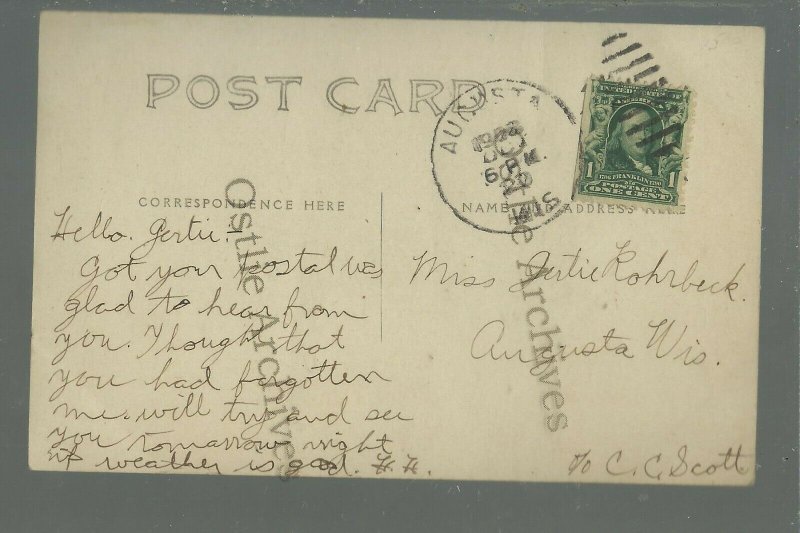 POST CARD
AUGUSTA
6 PM
WIS
UNITED STATES OF
AMERICA
1 1706 FRANKLIN 1790 1
POSTAGE
ONE CENT
CORRESPONDENCE HERE
NAME AND ADDRESS HERE
Hello. Gertie-
Got your postal was
glad to hear from
you. Thought that
you had forgotten
me. will try and see
you tomorrow night
if weather is good. H.H.
Miss Gertie Rohrbeck.
Augusta Wis.
c/o C. C. Scott
Ostlie Archives
Ostlie Archives